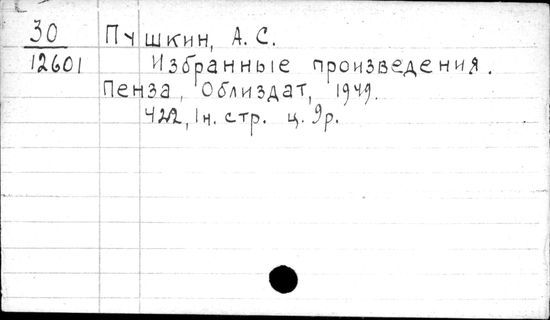 30
12601
Пушкин, А. С.
Избранные произведения.
Пенза, Облиздат, 1949.
422, 1н. стр. ц. 9р.